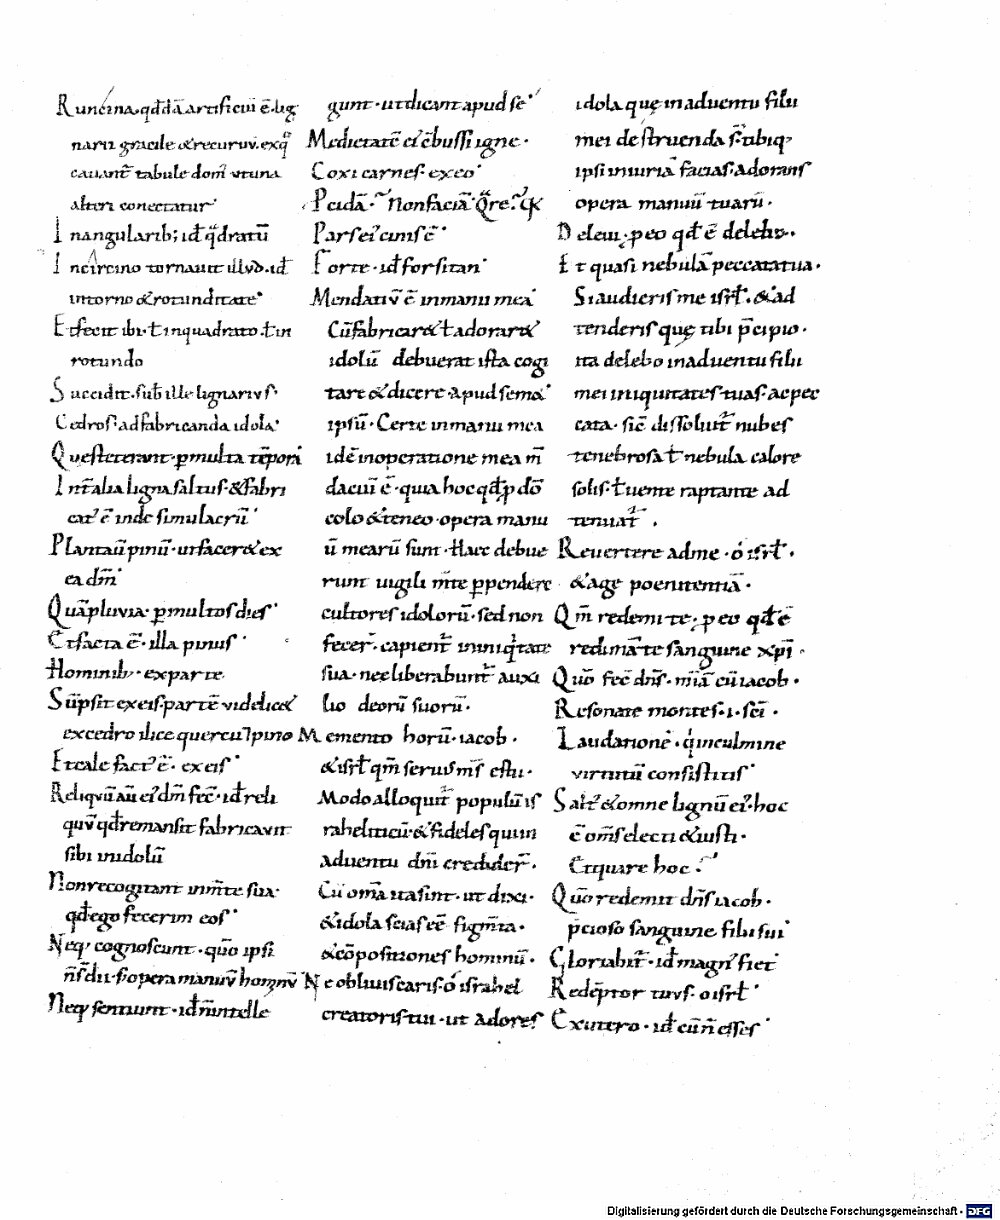 Runcina. qd̄dā artificiū ē. lig
narii gracile & recurvū. ex q̊
cavant̄ tabule dom̄ ut una
alteri conectatur.
In angularib; id̄ q̄dratū
In circino tornavit illud. id̄
in torno & rotunditate.
Et fecit ibi. ł in quadrato. ł in
rotundo
Succidit. sub̄ ille lignarius.
Cedros. ad fabricanda idola.
Que steterant. p multa tēpora
Int̄ alia ligna saltus. & fabri
cat' ē inde simulacrū.
Plantavī pinū. ut facer& ex
ea dm̄.
Quā pluvia. p multos dies.
Et facta ē. illa pinus.
Hominib;. ex parte.
Sūpsit ex eis. partē videlic&
ex cedro ilice quercu ⁊ pino
Et cale fact' ē. ex eis.
Reliquū aū ei' dm̄ fec̄. id̄ reli
quū qd̄ remansit fabricavit
sibi in idolū
Non recogitant in m̄te sua.
qd̄ ego fecerim eos.
Neq; cognoscunt. quō ipsi
n̄ s̄ dii. s; opera manuū hominū
Neq; sentiunt. id̄ n̄ intelle
gunt. ut dicant apud se.
Medietatē ei' cōbussi igne.
Coxi carnes. ex eo.
Pcidā.
Pars ei' cinis ē.
Forte. id̄ forsitan.
Mendatiū ē in manu mea.
Cū fabricar& ł adorar&
idolū debuerat ista cogi
tare & dicere apud sem&
ipsū. Certe in manu mea
idē in operatione mea m̄
daciū ē. quia hoc qd̄ p dō
colo & teneo. opera manu
ū mearū sunt. Haec debue
runt vigili m̄te ppendere
cultores idolorū. sed non
fecer̄. capient̄ in iniq̇tate
sua. nec liberabunt̄ auxi
lio deorū suorū.
Memento horū. iacob.
& isrł qm̄ servus ms̄ es tu.
Modo alloquit̄ populū is
raheliticū. & fideles qui in
adventu dnī credider̄.
Cū om̄a ita sint. ut dixi.
& idola scias eē figm̄ta.
& cōpositiones hominū.
Ne obliviscaris. ó israhel
creatoris tui. ut adores
idola que in adventu filii
mei destruenda s̄. tibiq;
ipsi iniuriā facias. adorans
opera manuū tuarū.
Delevi. p eo qd̄ ē delebo.
Et quasi nebulā peccata tua.
Si audieris me isrł. & ad
tenderis que tibi p̄cipio.
ita delebo in adventu filii
mei iniquitates tuas. ac pec
cata. sic̄ dissolvit̄ nubes
tenebrosa ł nebula calore
solis. ł vento raptante ad
tenuat̄.
Revertere ad me. ó isrł.
& age poenitentiā.
Qm̄ redemi te. p eo qd̄ ē
redimā te sanguine xp̄i.
Quō fec̄ dn̄s. m̄iā cū iacob.
Resonate montes. i. sc̄i.
Laudationē. q̇ in culmine
virtutū consistitis.
Salt' & omne lignū ei'. hoc
ē om̄s electi & iusti.
Et quare hoc?
Quō redemit dn̄s iacob.
p̄cioso sanguine filii sui.
Gloriabit̄. id̄ magn' fiet
Redēptor tuus. o isrł.
Ex utero. id̄ cū n̄ esses.
Digitalisierung gefördert durch die Deutsche Forschungsgemeinschaft - DFG